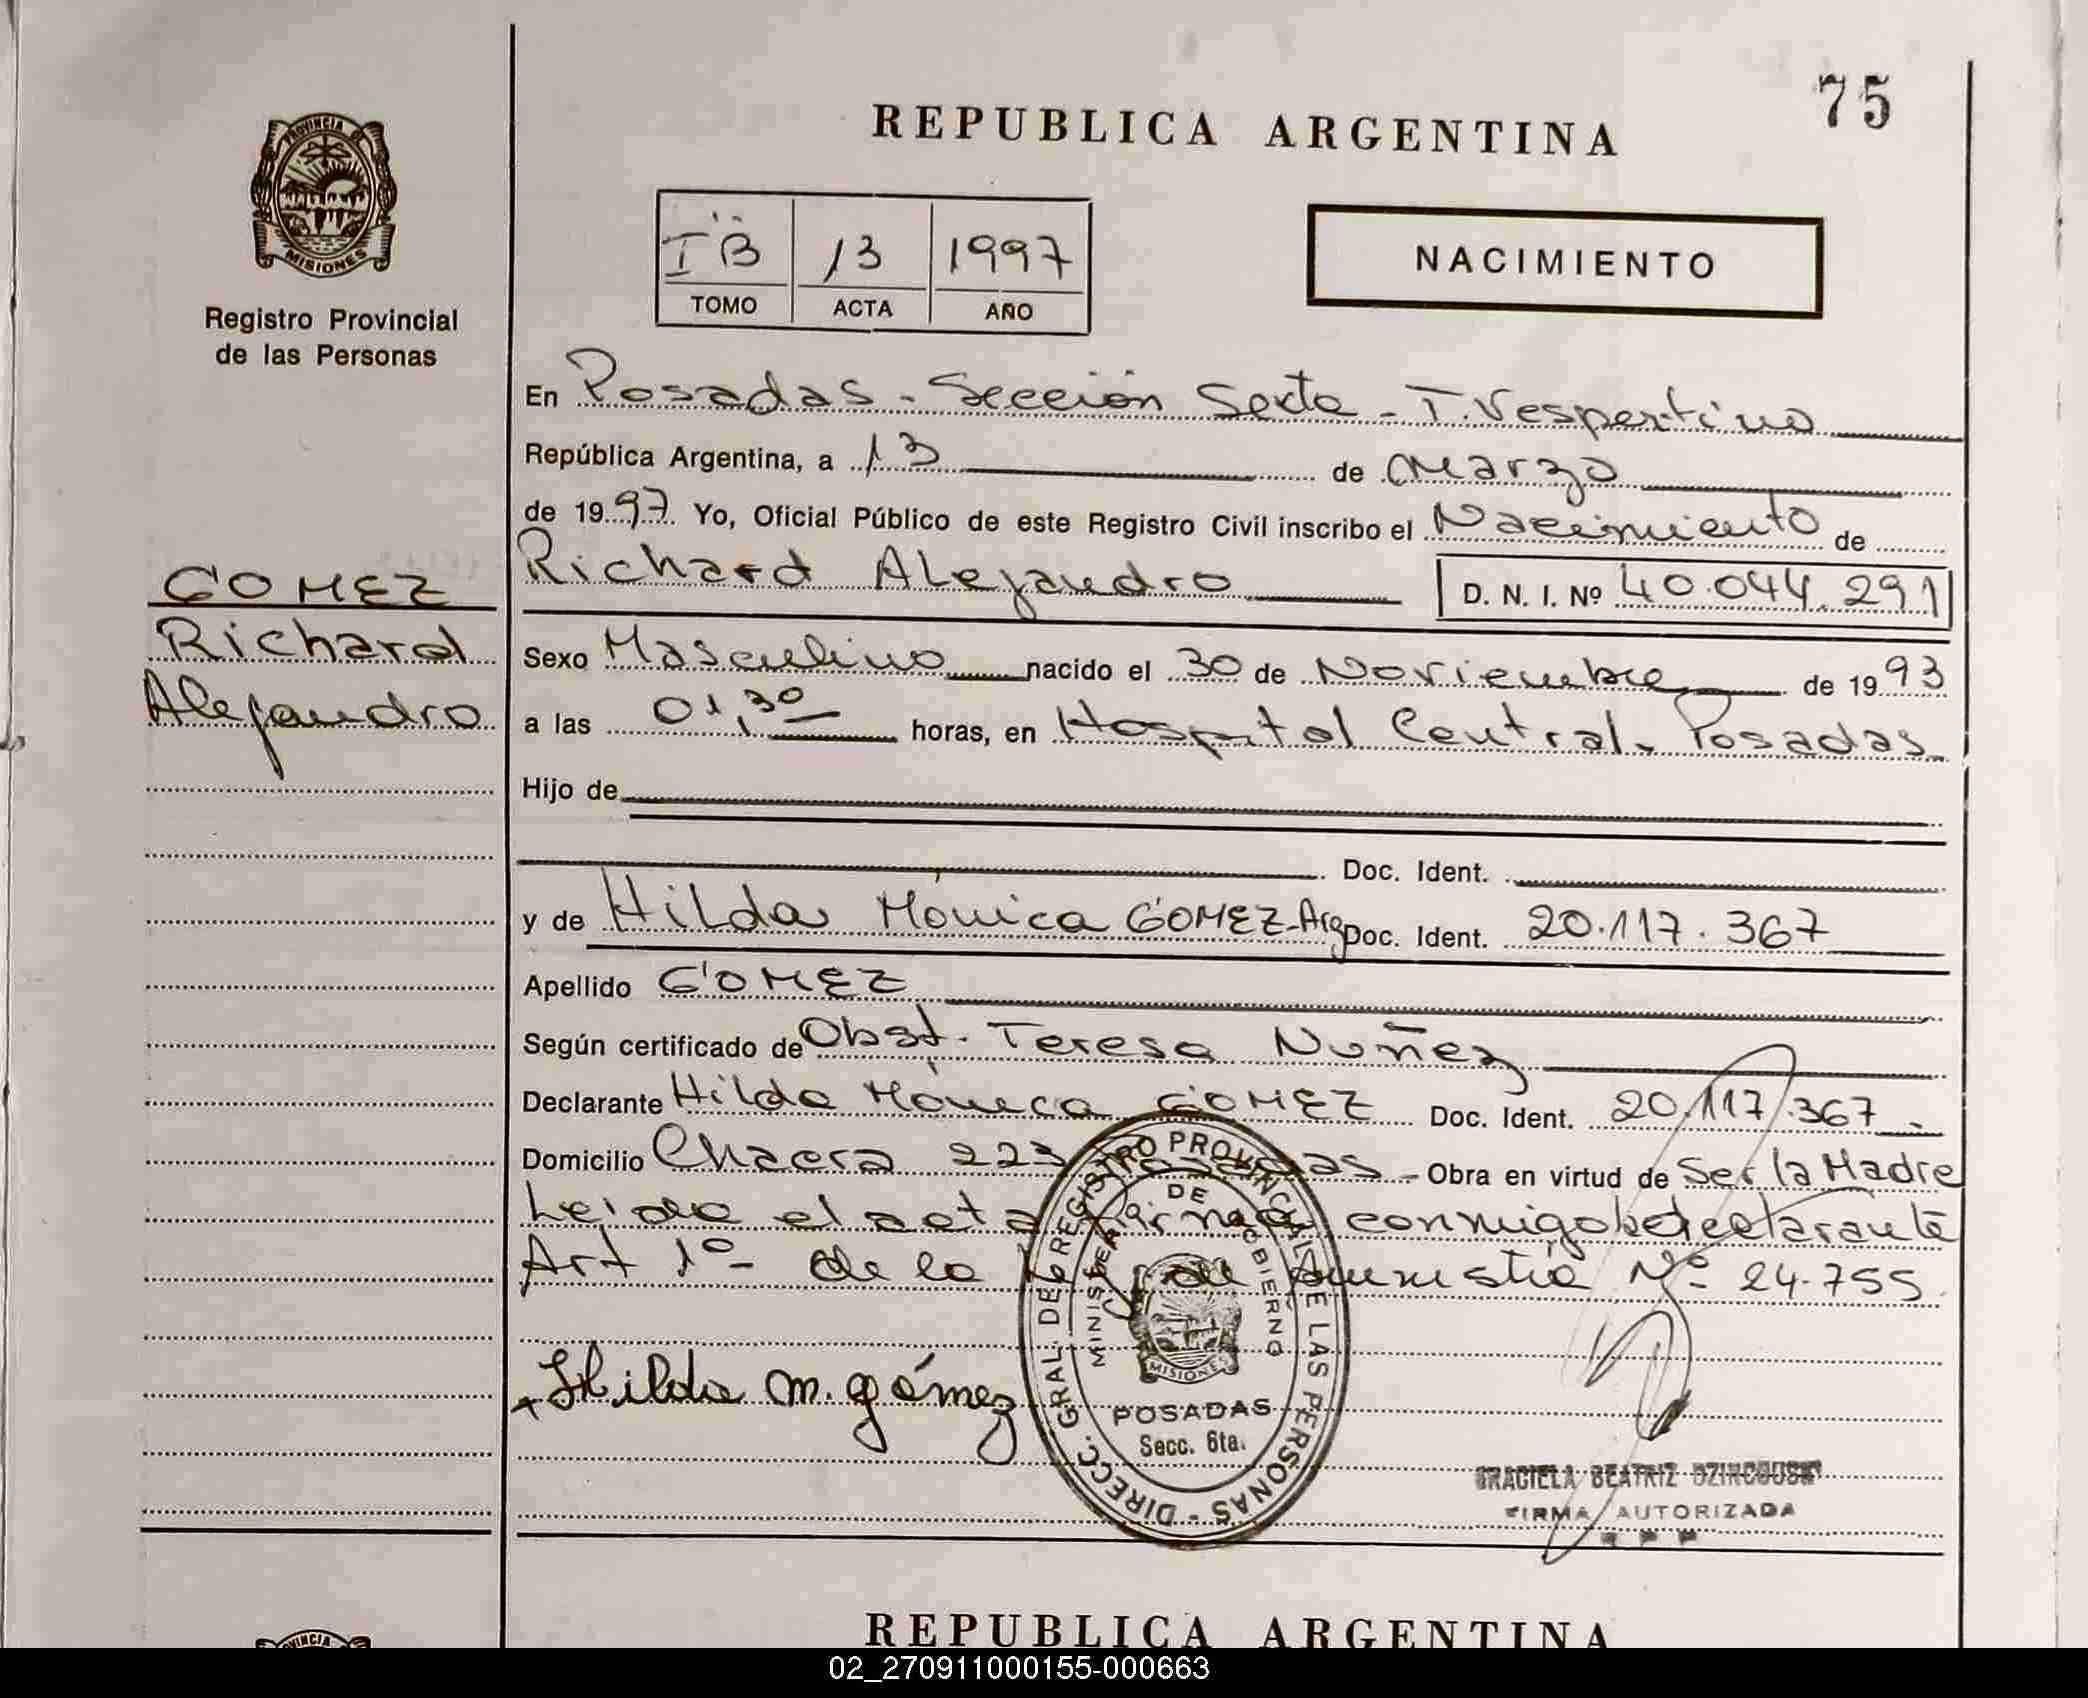 75
REPUBLICA ARGENTINA
PROVINCIA DE
MISIONES
Registro Provincial
de las Personas
I "B" 13 1997
TOMO ACTA AÑO
NACIMIENTO
GOMEZ
Richard
Alejandro
En Posadas - Sección Sexta - T. Vespertino
República Argentina, a 13 de Marzo
de 1997 Yo, Oficial Público de este Registro Civil inscribo el Nacimiento de
Richard Alejandro D. N. I. Nº 40.044.291
Sexo Masculino nacido el 30 de Noviembre de 1993
a las 01,30 horas, en Hospital Central - Posadas
Hijo de
Doc. Ident.
y de Hilda Mónica GOMEZ - Arg Doc. Ident. 20.117.367
Apellido GOMEZ
Según certificado de Obst. Teresa Nuñez
Declarante Hilda Mónica GOMEZ Doc. Ident. 20.117.367
Domicilio Chacra 223 Posadas - Obra en virtud de Ser la Madre
Leida el acta firma conmigo la declarante
Art 1º - de la Ley de Amnistia Nº 24.755
Hilda M. gómez
DIRECC. GRAL. DEL REGISTRO PROVINCIAL DE LAS PERSONAS
MINISTERIO DE GOBIERNO
MISIONES
POSADAS
Secc. 6ta.
GRACIELA BEATRIZ
FIRMA AUTORIZADA
REPUBLICA ARGENTINA
02_270911000155-000663